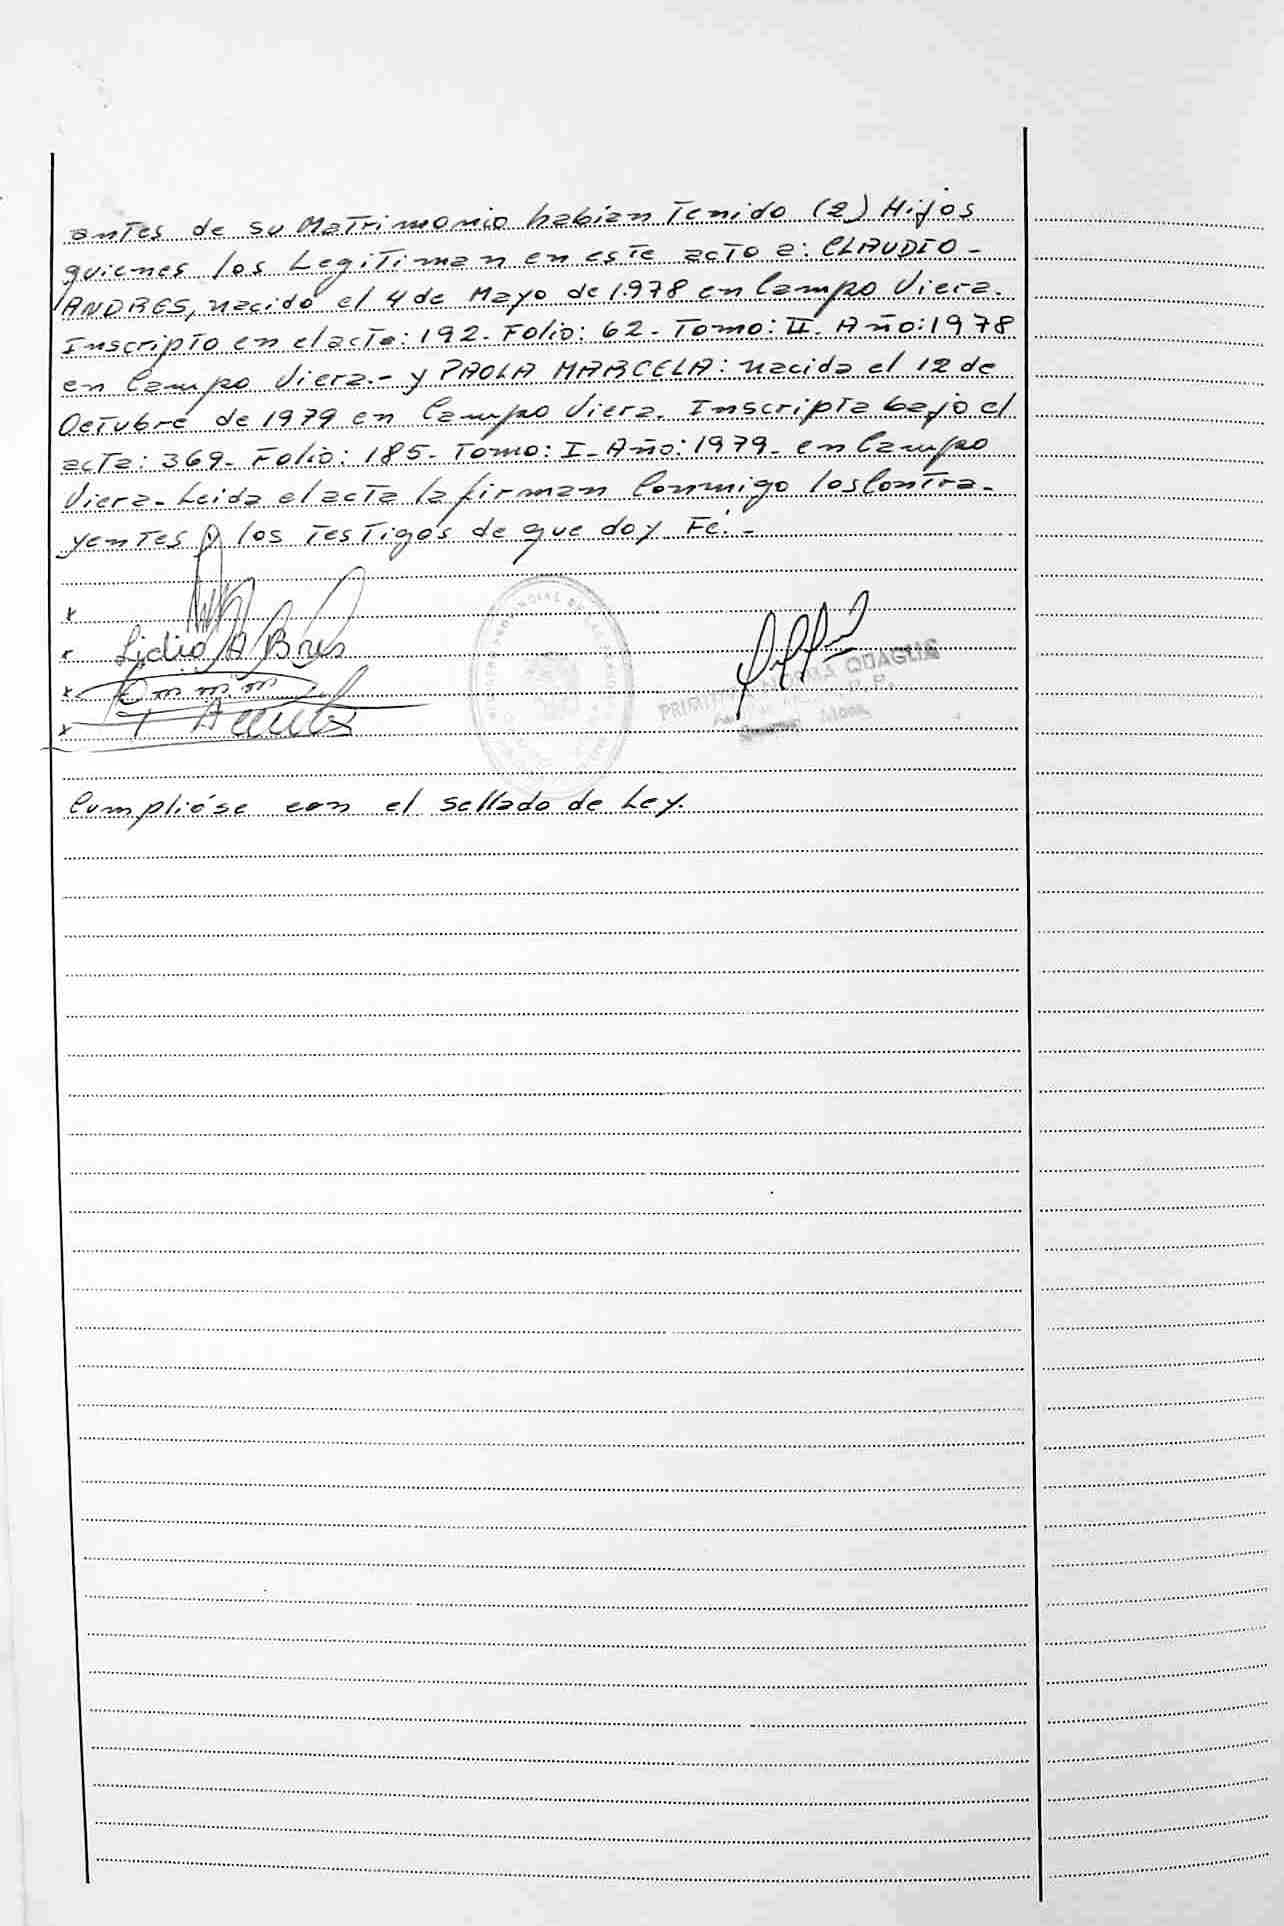 antes de su Matrimonio habian Tenido (2) Hijos
quienes los Legitiman en este acto a: CLAUDIO-
ANDRES, nacido el 4 de Mayo de 1.978 en Campo Viera.
Inscripto en el acta: 192. Folio: 62. Tomo: II. Año: 1978
en Campo Viera.- y PAOLA MARCELA: nacida el 12 de
Octubre de 1979 en Campo Viera. Inscripta bajo el
acta: 369. Folio: 185. Tomo: I. Año: 1979. en Campo
Viera. Leida el acta la firman Conmigo los Contra-
yentes y los Testigos de que doy Fé.-
x
x Lidia A
x
x
PRIMITIVA NORMA QUAGLIA
Cumplióse con el sellado de Ley.